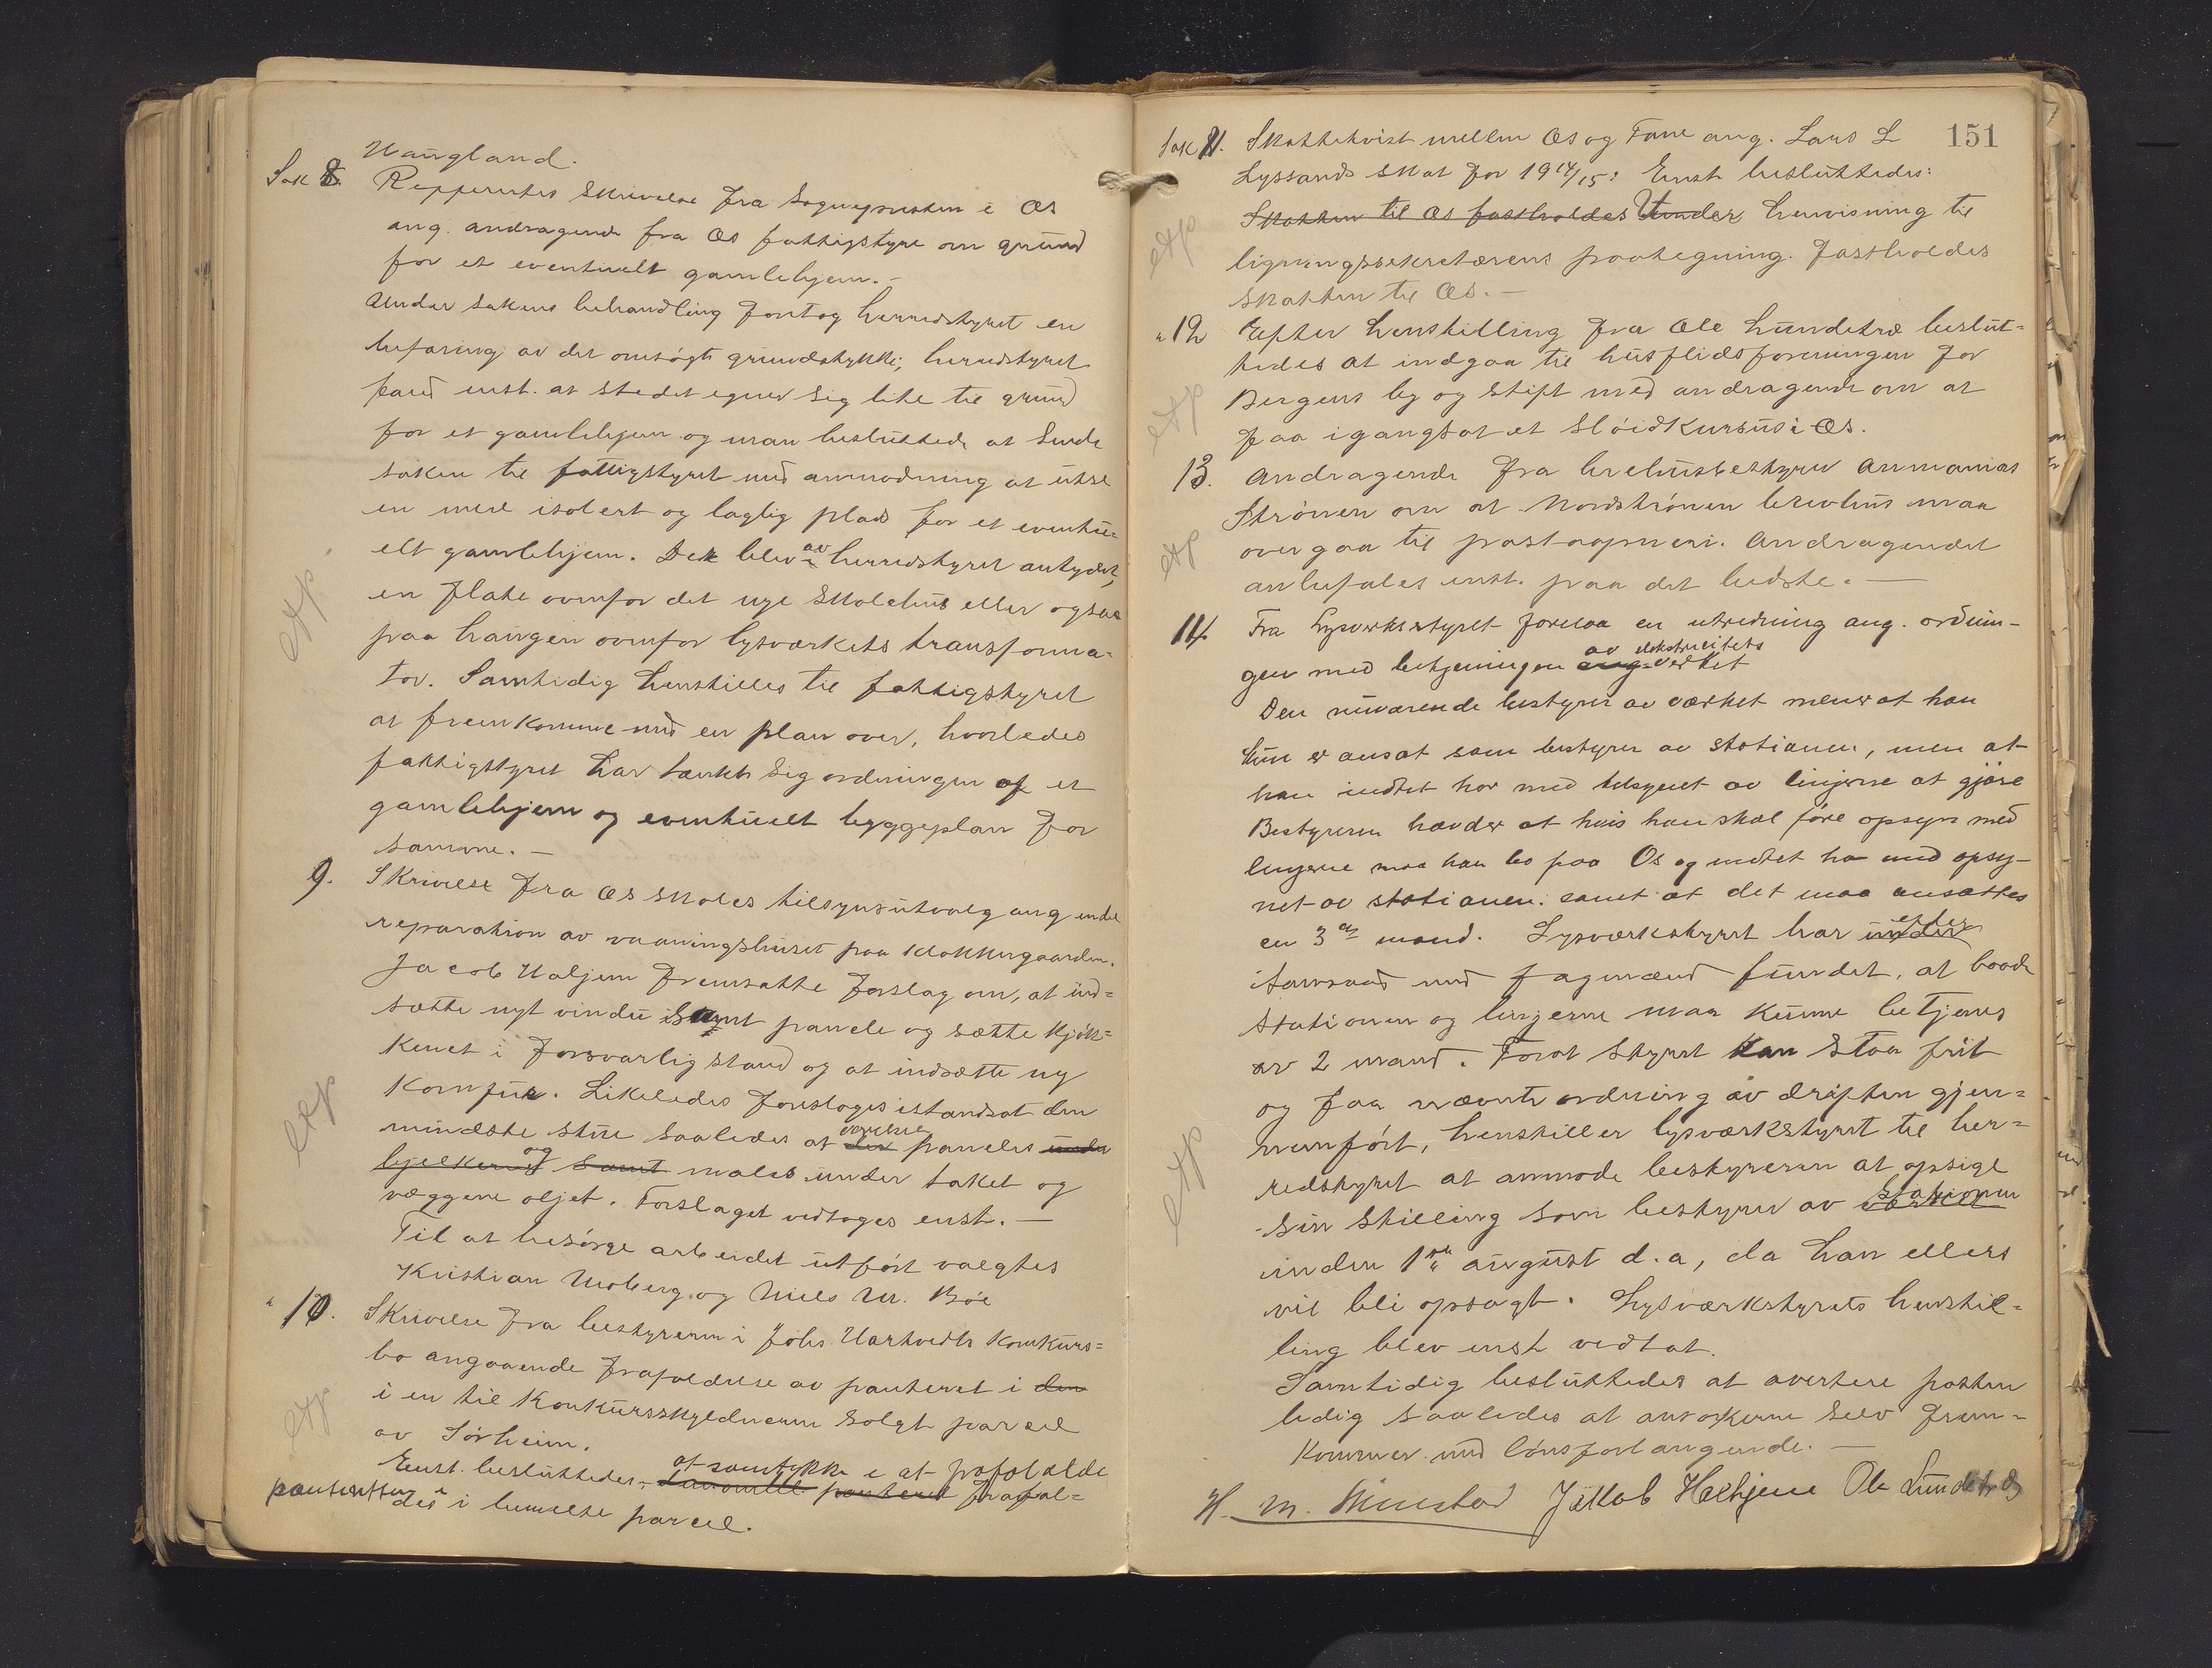 Haugland.
Sak 8. Refferertes skrivelse fra Sogneprsten i Os
ang. andragende fra Os fattigstyre om grund
for et eventuelt gamlehjem. -
Under sakens behandling foretog herredstyret en
befaring av det omsøgte grundstykke; herredstyret
fand enst. at stedet egner sig lite til grund
for et gamlehjem og man besluttede at sende
saken til fattigstyret med anmodning at utse
en mere isolert og laglig plads for et eventu=
elt gamlehjem. Det blev av herredstyret antydet,
en flate ovenfor det nye skolehus eller ogsaa
paa haugen ovenfor lysværkets transforma=
tor. Samtidig henstilles til fattigstyret
at fremkomme med en plan over, hvorledes
fattigstyret har tænkt sig ordningen af et
gamlehjem og eventuelt byggeplan for
samme. -
9. Skrivelse fra Os skoles tilsynsutvalg ang endel
reparation av vaaningshuset paa Klokkergaarden.
Jacob Haljem fremsatte forslag om, at ind=
sætte nyt vindu samt panele og sætte kjøk=
kenet i forsvarlig stand og at indsætte ny
komfur. Likeledes foreslages istandsat den
mindste stue saaledes at den værelse paneles under
bjelkerne og samt males under taket og
væggene oljet. Forslaget vedtages enst. -
Til at besørge arbeidet utført valgtes
Kristian Moberg og Nils M. Bøe
" 10. Skrivelse fra bestyreren i Johs. Hartvedts konkurs=
bo angaaende frafaldelse av panteret i den
i en til Konkursskyldneren solgt parcel
av Sørheim.
Enst. besluttedes: at samtykke i at frafalde
panteretten panteret frafal=
des i bemelte parcel.
151
Sak 11. Skattetvist mellem Os og Fane ang. Lars L
Lyssands skat for 1914/15: Enst. besluttedes:
Skatten til Os fastholdes Under henvisning til
ligningssekretærens paategning fastholdes
skatten til Os. -
" 12 Efter henstilling fra Ole Lundetræ beslut=
tedes at indgaa til husflidsforeningen for
Bergens by og stift med andragende om at
faa igangsat et sløidkursus i Os.
13. Andragende fra brevhusbestyrer Annanias
Strønen om at Nordstrønen brevhus maa
overgaa til postaapneri. Andragendet
anbefales enst. paa det bedste. -
14 Fra Lysverksstyret forelaa en utredning ang. ordnin-
gen med betjeningen av elektricitets verket
Den nuværende bestyrer av værket mener at han
kun er ansat som bestyrer av stationen, men at
han indtet har med tilsynet av linjerne at gjøre
Bestyreren hævder at hvis han skal føre opsyn med
linjerne maa han bo paa Os og indtet ha med opsy-
net av stationen. samt at det maa ansættes
en 3die mand. Lysværkstyret har under efter
samraad med fagmænd fundet, at baade
stationen og linjerne maa kunne betjenes
av 2 mand. Forat styret kan staa frit
og faa nævnte ordning av driften gjen=
nemført, henstiller lysværkstyret til her=
redstyret at anmode bestyreren at opsige
sin stilling som bestyrer av værket stationen
inden 1ste august d.a, da han ellers
vil bli opsagt. Lysværkstyrets henstil=
ling blev enst. vedtat.
Samtidig besluttedes at avertere posten
ledig saaledes at ansøkerne selv frem=
kommer med lønsforlangende. -
H. M. Mustad Jakob Helhjem Ole Lundetræ